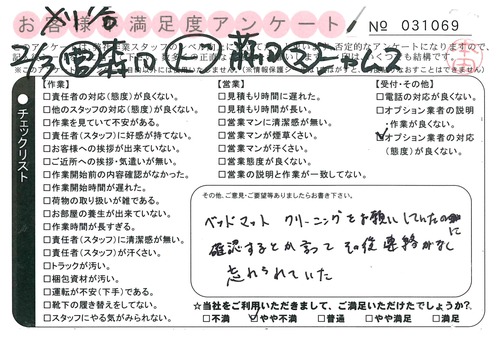 刈谷
お客様 満足度アンケート
No 031069
チェックリスト
【作業】
□責任者の対応(態度)が良くない。
□他のスタッフの対応(態度)が良くない。
□作業を見ていて不安がある。
□責任者(スタッフ)に好感が持てない。
□お客様への挨拶が出来ていない。
□ご近所への挨拶・気遣いが無い。
□作業開始前の内容確認がなかった。
□作業開始時間が遅れた。
□荷物の取り扱いが雑である。
□お部屋の養生が出来ていない。
□作業時間が長すぎる。
□責任者(スタッフ)に清潔感が無い。
□責任者(スタッフ)が汗くさい。
□トラックが汚い。
□梱包資材が汚い。
□運転が不安(下手)である。
□靴下の履き替えをしてない。
□スタッフにやる気がみられない。
【営業】
□見積もり時間に遅れた。
□見積もり時間が長い。
□営業マンに清潔感が無い。
□営業マンが煙草くさい。
□営業マンが汗くさい。
□営業態度が良くない。
□営業の説明と作業が一致してない。
【受付・その他】
□電話の対応が良くない。
□オプション業者の説明
・作業が良くない。
☑オプション業者の対応
(態度)が良くない。
その他、ご意見・ご要望等ありましたらお書き下さい。
ベッドマット クリーニングをお願いしていたのに
確認するとか言って その後連絡がなし
忘れられていた
☆当社をご利用いただきまして、ご満足いただけたでしょうか?
□不満 ☑やや不満 □普通 □やや満足 □満足